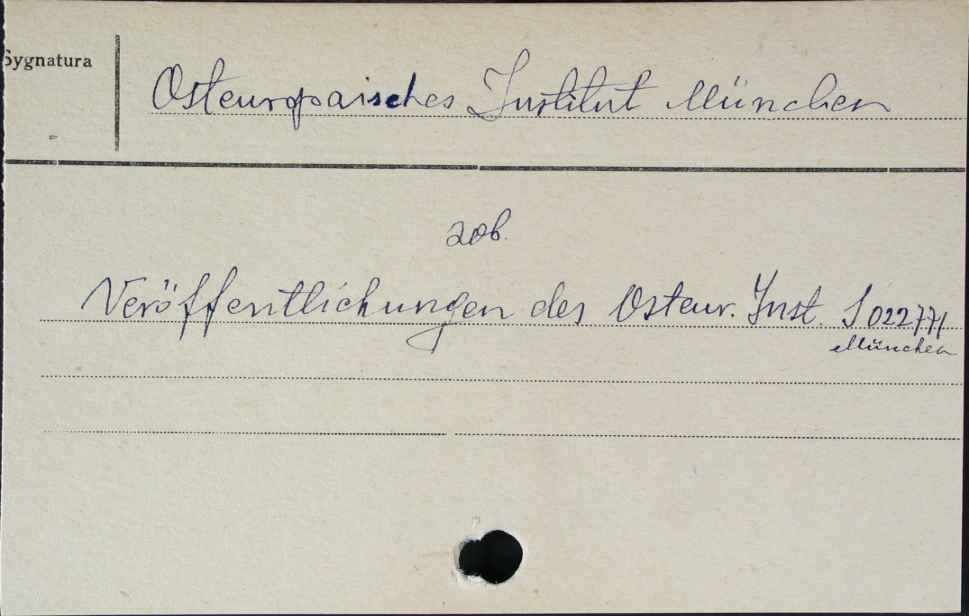 Sygnatura
Osteuropaisches Institut München
zob.
Veröffentlichungen des Osteur. Inst. S 022771
München